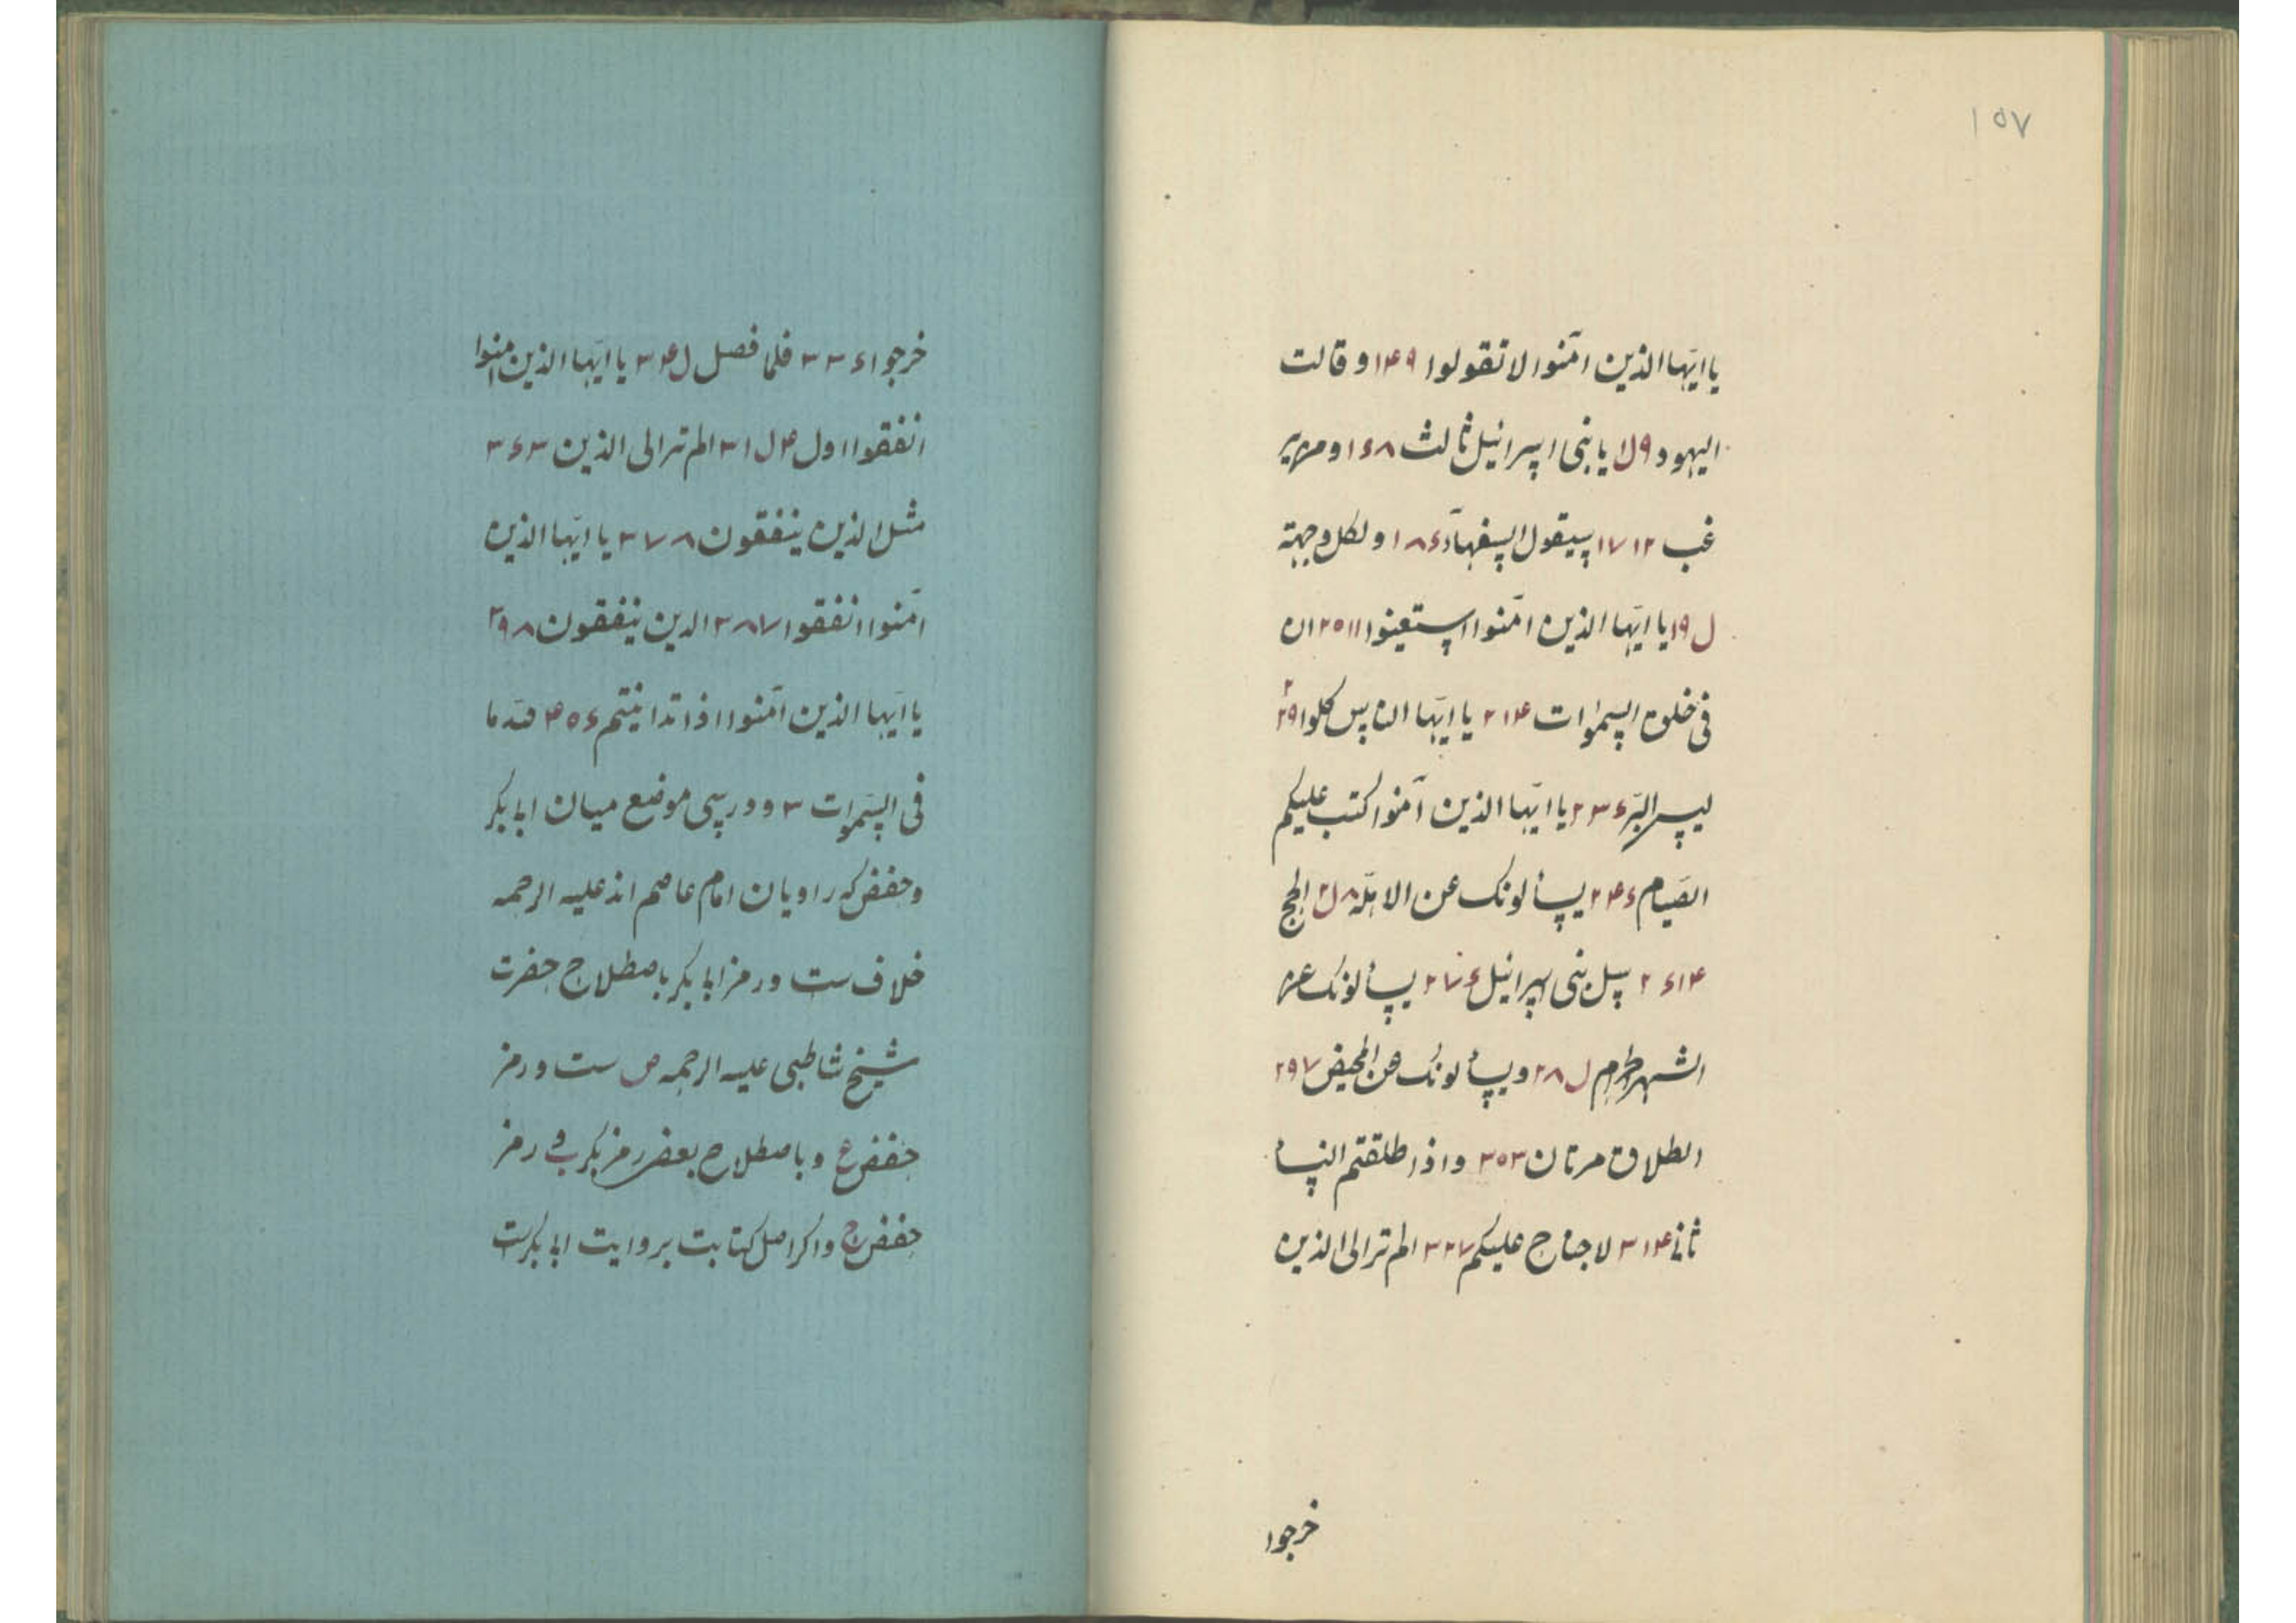 ١٥٧
یا ایّها الذین امَنوا لا تقولوا ١۴٩ و قالت
الیهود ٩ل١ یا بنی اسرائیل ثالث ١۶٨ و من یر
غب ١٧١٢ سیقول السفهآء ١٨۶ و لکل وجهة
ل١٩ یا ایّها الذین امَنوا استعینوا ٢٥١١ ان
فی خلق السموات ٢١۴ یا ایّها الناس کلوا ٢٢٩
لیس البرّ ٢٣۶ یا ایّها الذین آمنوا کتب علیکم
الصّیام ٢۴۶ یسألونک عن الاهلّة ٨ل٢ الحج
٢۶١۴ سل بنی اسرائیل ٢٧۶ یسألونک عن
الشهر الحرام ل٢٨ و یسألونک عن المحیض ٢٩٧
الطلاق مرتان ٣٥٣ و اذا طلقتم النسأ
ثانی ٣١۴ لا جناح علیکم ٣٢٧ الم تر الی الذین
خرجوا
خرجوا ٣٣۶ فلما فصل ل٣۴ یا ایّها الذین امنوا
انفقوا اول ۴ل٣١ الم تر الی الذین ٣۶٣
مثل الذین ینفقون ٣٧٨ یا ایّها الذین
امَنوا انفقوا ٣٨٧ الذین ینفقون ٣٩٨
یا ایّها الذین امَنوا اذا تداینتم ۴٥۶ لله ما
فی السّموات ٣ و در سی موضع میان ابابکر
و حفص که راویان امام عاصم اند علیه الرحمه
خلاف ست و رمز ابابکر باصطلاح حضرت
شیخ شاطبی علیه الرحمه ص ست و رمز
حفص ع و باصطلاح بعض رمز بکر ب و رمز
حفص ح و اگر اصل کتابت بروایت ابابکرست